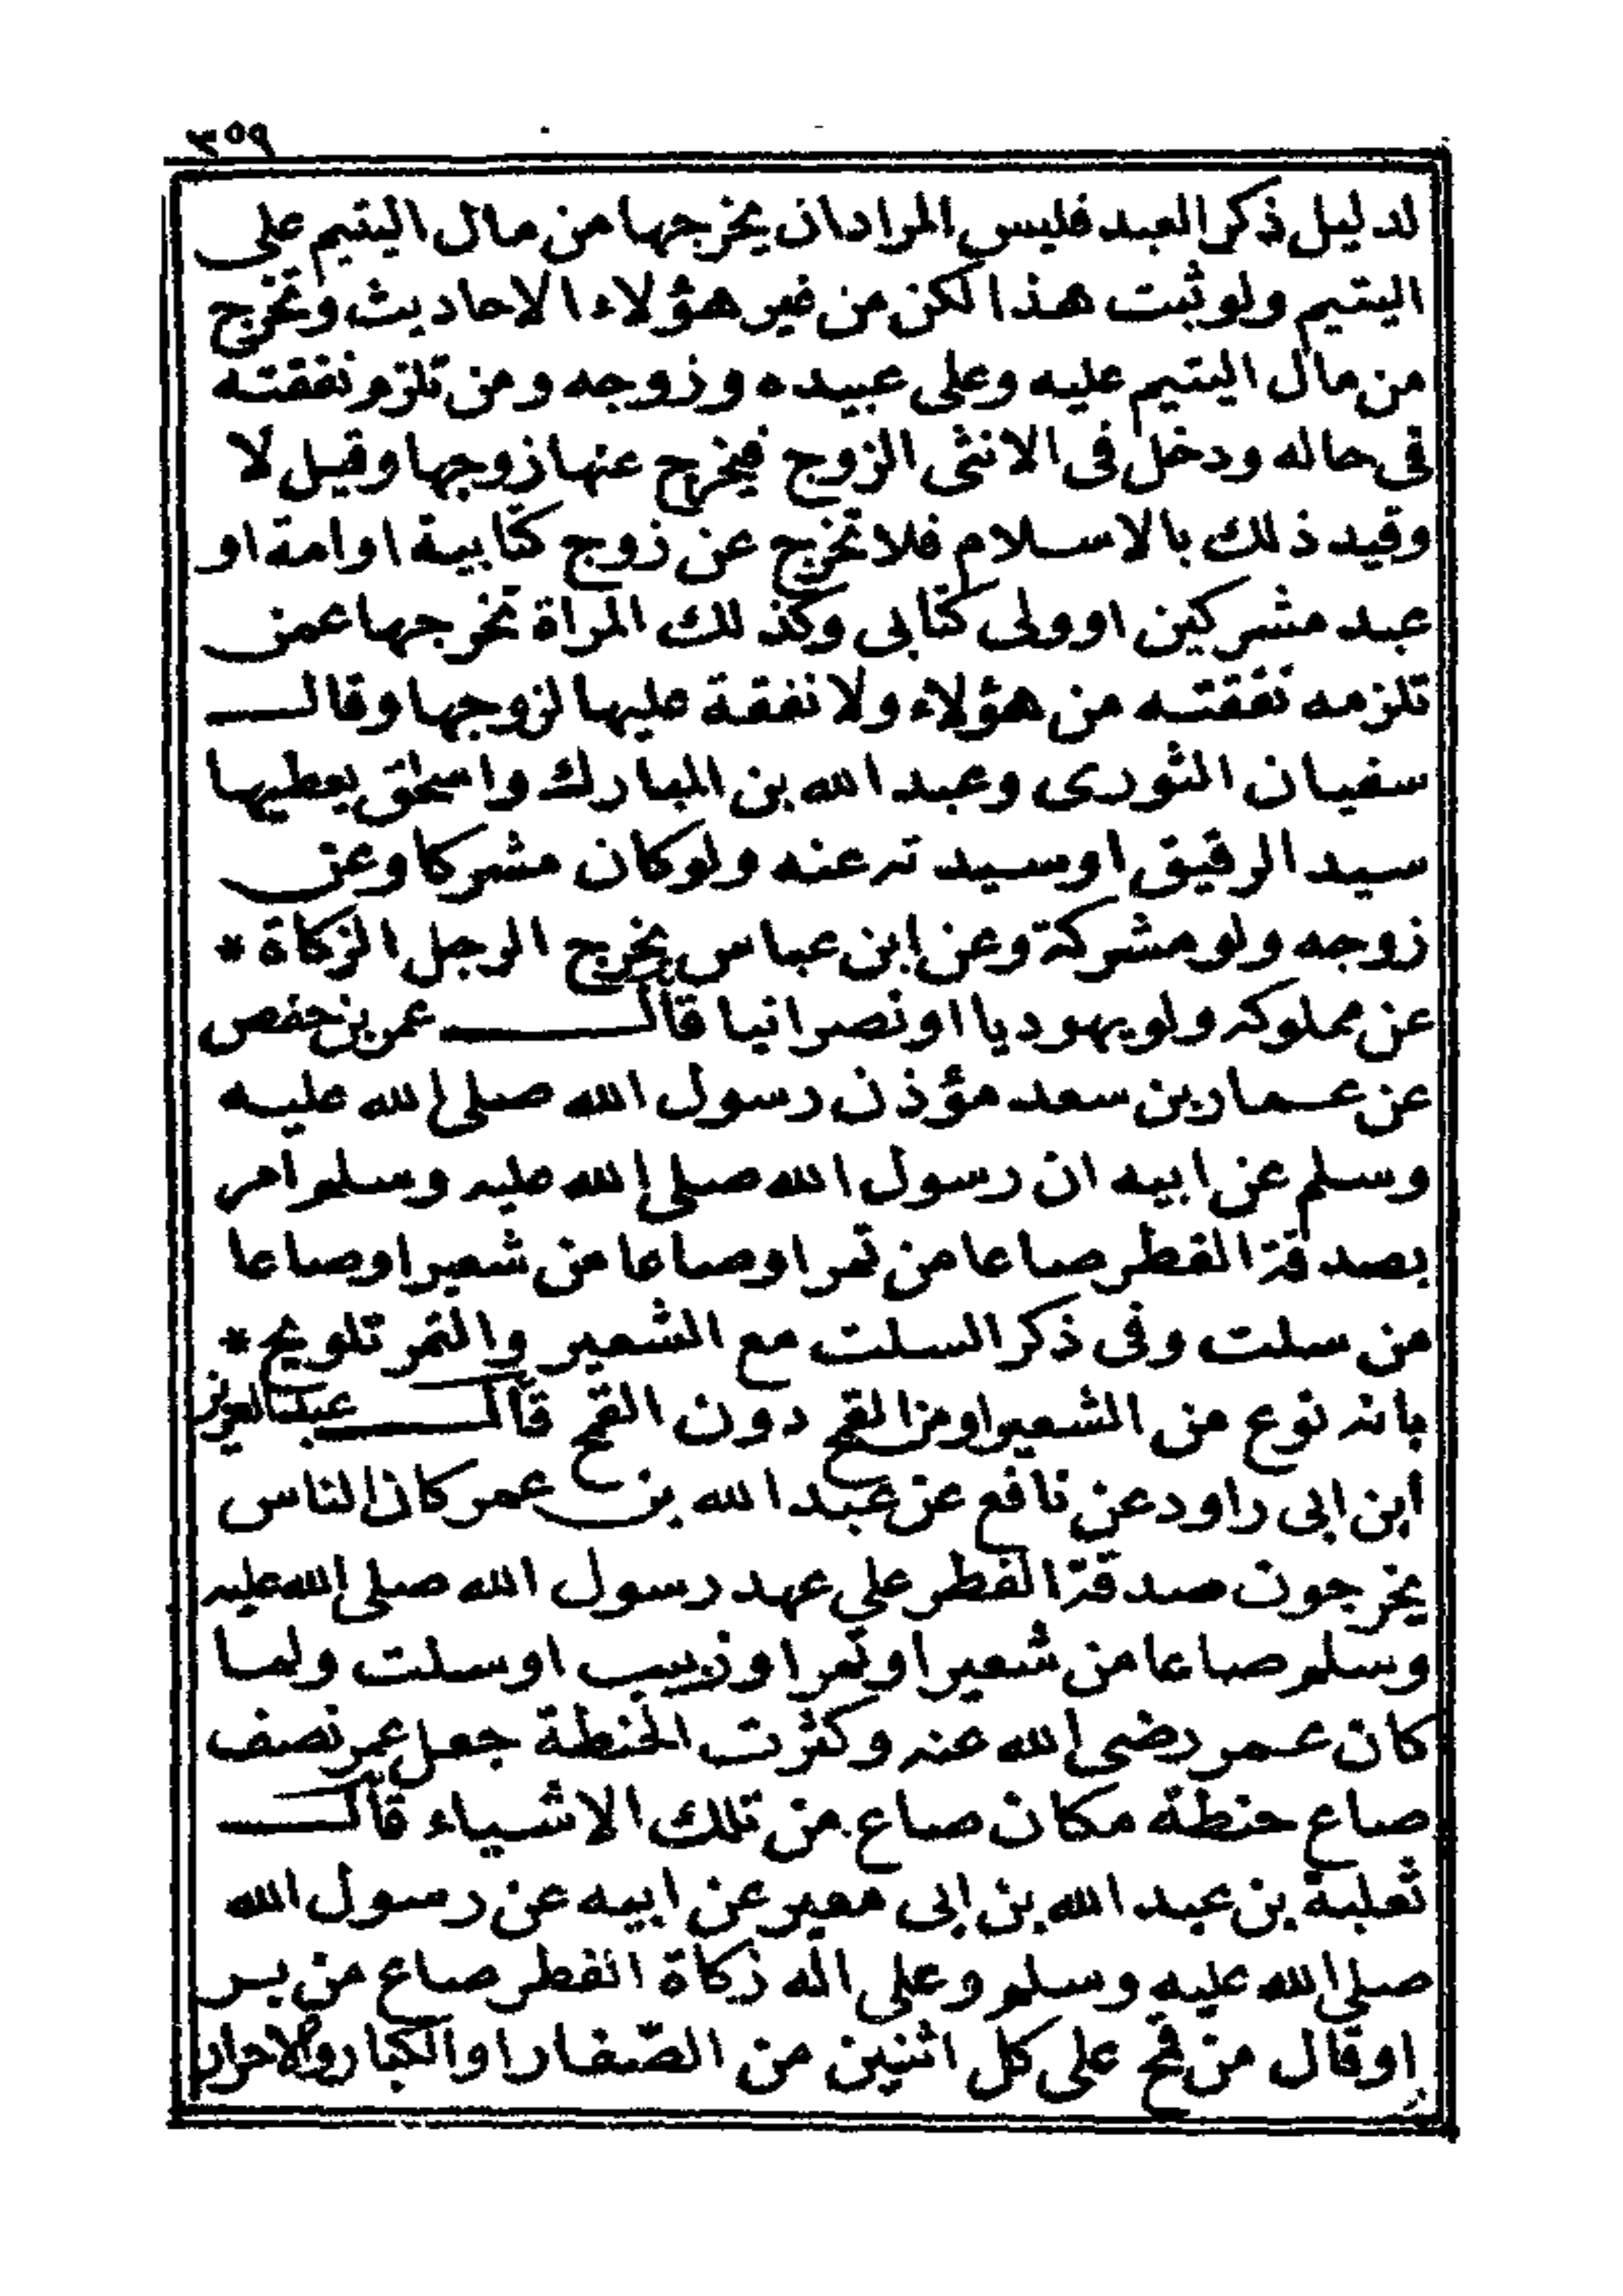 ٣٥٩
لدليل ذكر العبد فليس المراد ان يخرجها من مال اليتيم على
اليتيم ولو ثبت هذا لكن من غير هؤلاء الاحاديث وتخرج
من مال اليتيم عليه وعلى عبيده وزوجه ومن تلزم نفقته
فى حاله ودخل فى الانثى الزوج فيخرج عنها زوجها وقيل لا
وقيد ذلك بالاسلام فلا تخرج عن زوج كتابية او امة او
عبد مشركين او ولى كتابى وكذلك المراة تخرجها عمن
تلزمه نفقته من هؤلاء ولا نفقة عليها لزوجها وقال
سفيان الثورى وعبد الله بن المبارك واسحق يعطيها
سيد الرقيق او سيدته عنه ولو كان مشركا وعن
زوجه ولو مشركة وعن ابن عباس يخرج الرجل الزكاة *
عن مملوكه ولو يهوديا او نصرانيا قال عمر بن حفص
عن عمار بن سعد مؤذن رسول الله صلى الله عليه
وسلم عن ابيه ان رسول الله صلى الله عليه وسلم امر
بصدقة الفطر صاعا من تمر او صاعا من شعير او صاعا
من سلت وفى ذكر السلت مع الشعير والتمر تلويح *
بانه نوع من الشعير او من القمح دون القمح قال عبد العزيز
ابن ابى راود عن نافع عن عبد الله بن عمر كان الناس
يخرجون صدقة الفطر على عهد رسول الله صلى الله عليه
وسلم صاعا من شعير او تمر او زبيب او سلت ولما
كان عمر رضى الله عنه وكثرت الحنطة جعل عمر نصف
صاع حنطة مكان صاع من تلك الاشياء قال
ثعلبة بن عبد الله بن ابى معير عن ابيه عن رسول الله
صلى الله عليه وسلم وعلى اله زكاة الفطر صاع من بر
او قال من قمح على كل اثنين من الصغار او الكبار والاحرار